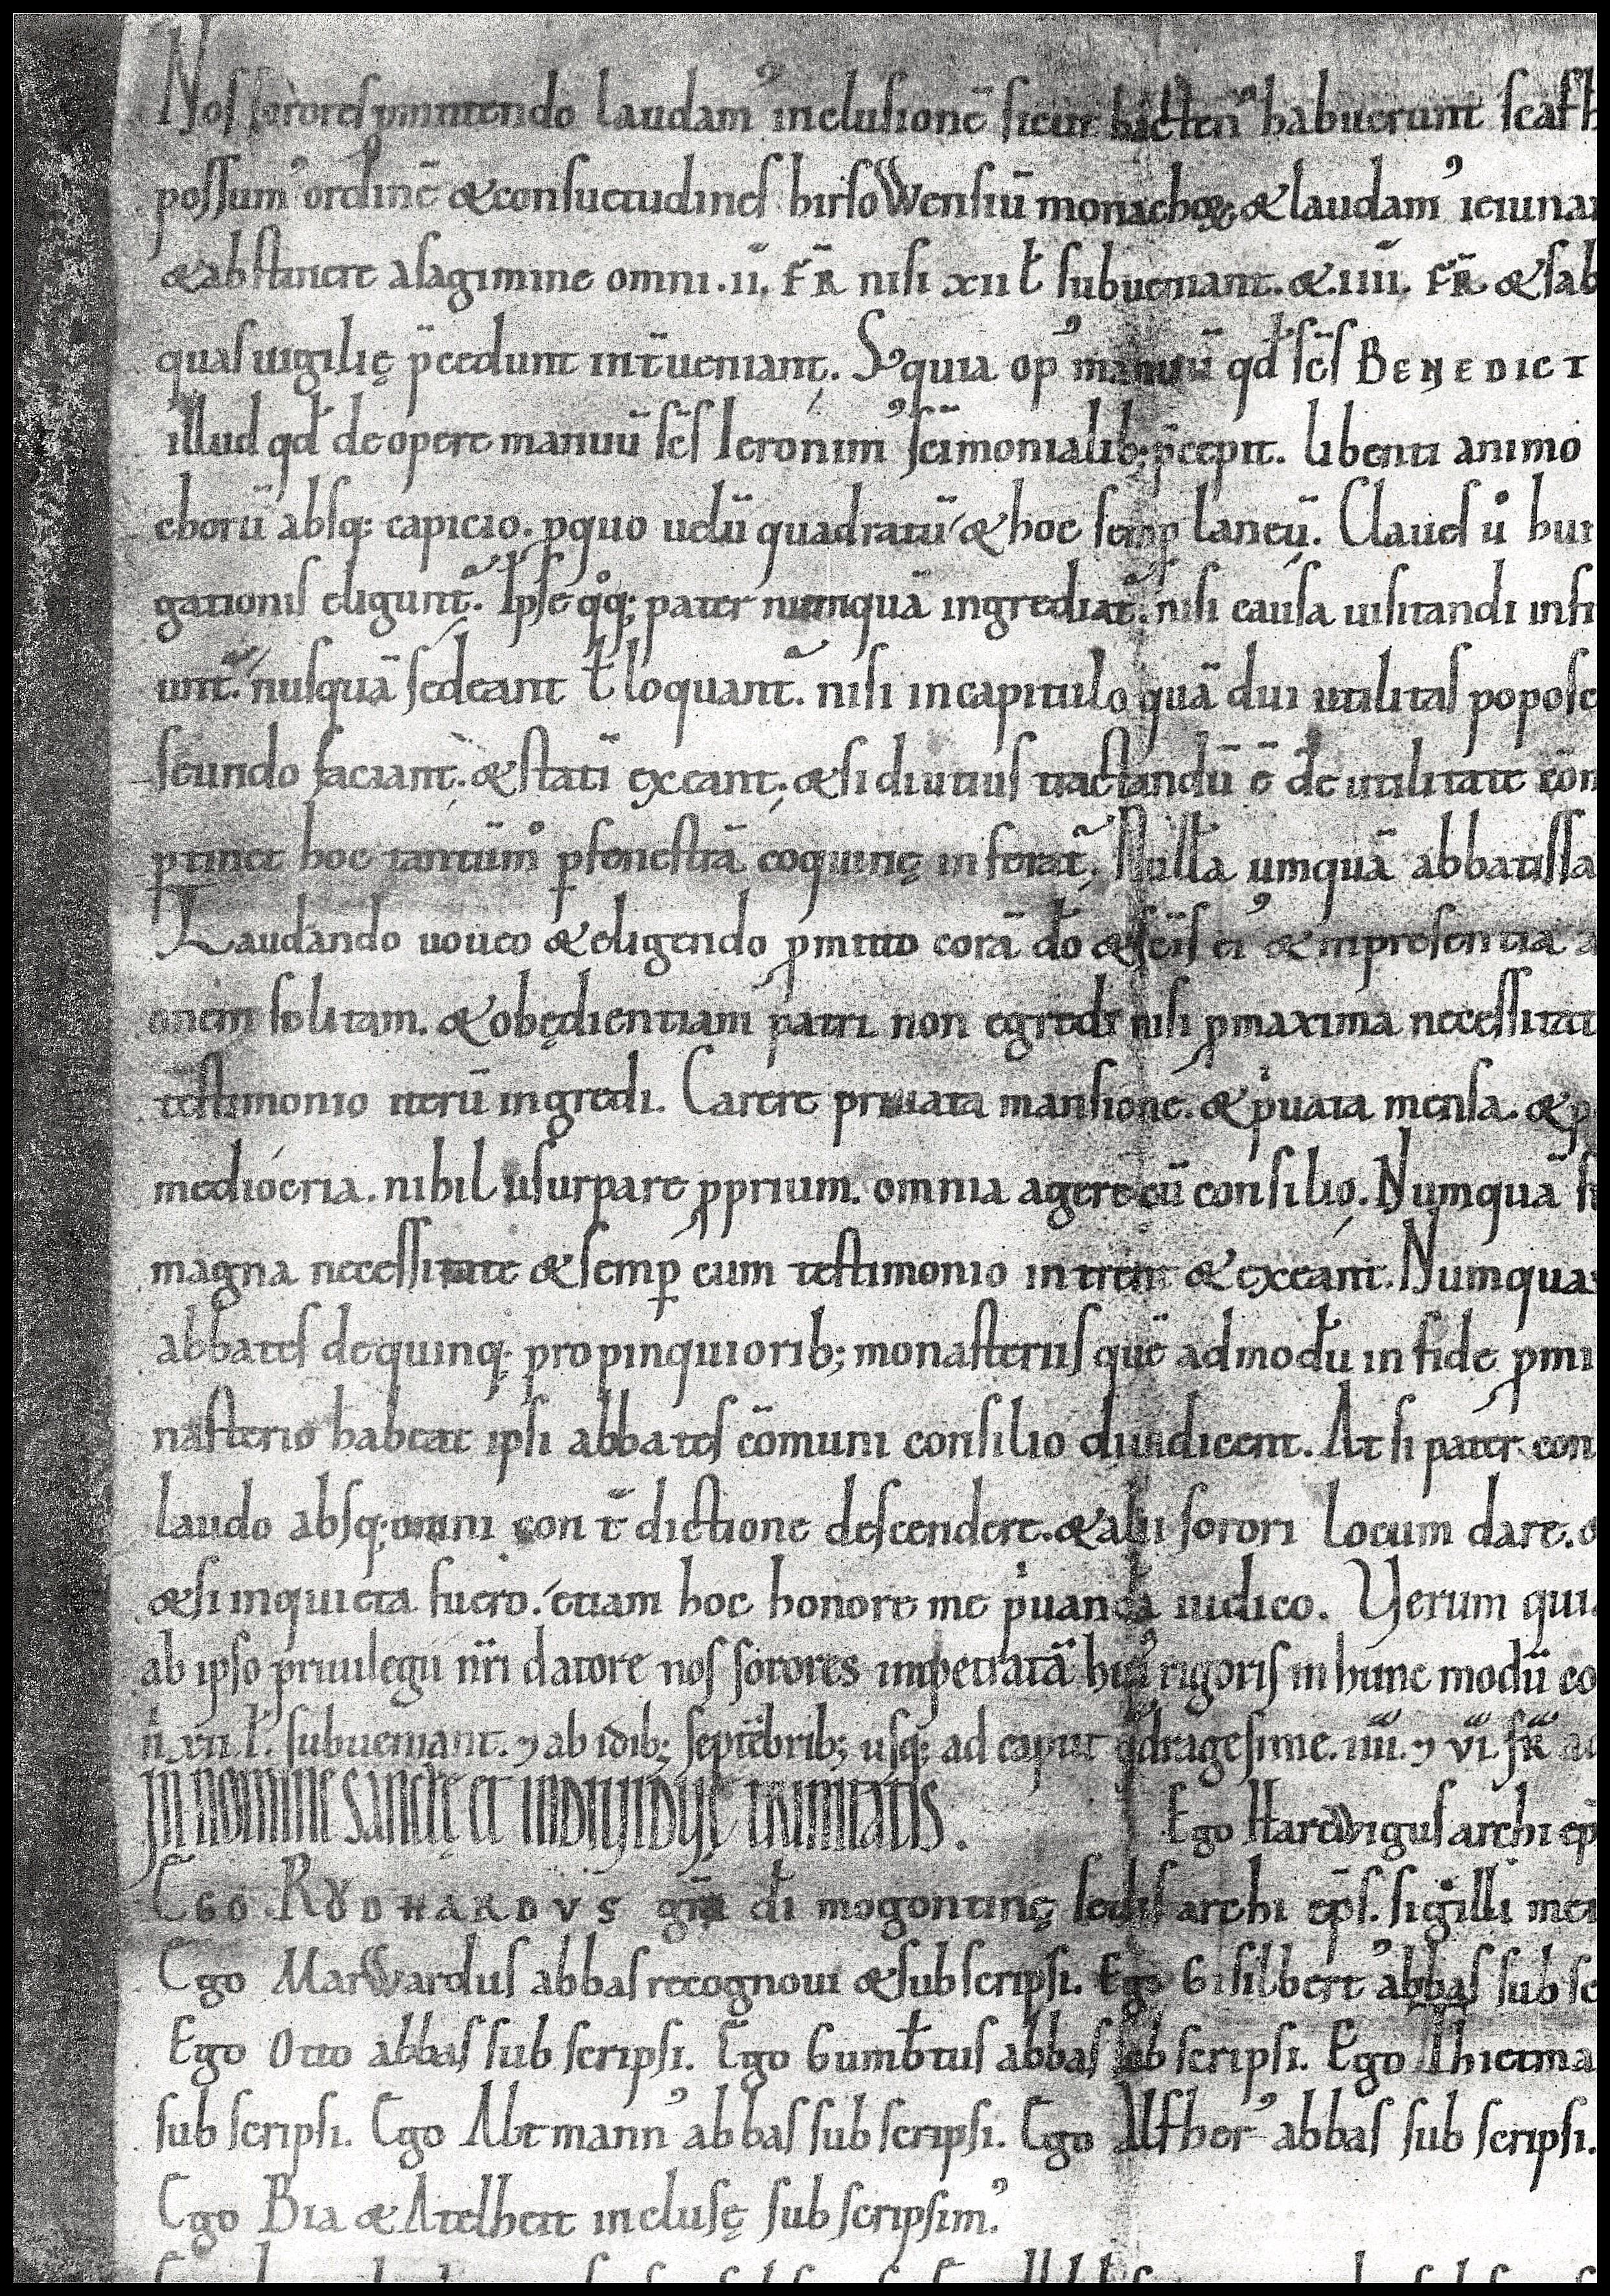 Nos sorores pmittendo laudam᾽ inclusionē sicut hacten᾽ habuerunt
possum᾽ ordinē & consuetudines hirsoWensiū monachoꝝ & laudam᾽ ieiuna
& abstinere a sagimine omni. ii. FR̄ nisi xii ł subueniant. & .iiii. FR̄ & sab
quas uigilię p̄cedunt int̄ueniant. S; quia op᾽ manuū qd̄ sc̄s BENEDICT
illud qd̄ de opere manuū sc̄s Ieronim᾽ sc̄imonialib; p̄cepit. libenti animo
chorū absq; capicio. p quo uelū quadratū & hoc semꝑ laneū. Claues ů
gationis eligunt᷑. Ipse q̊q; pater numquā ingrediat᷑. nisi causa uisitandi infi
unt᷑. nusquā sedeant ł loquant᷑. nisi in capitulo quā diu utilitas poposc
scdo faciant; & statī exeant; & si diutius tractandū ē de utilitate cōm
ꝑtinet hoc tantūm̊ ꝑ fenestrā coquinę inferat᷑. Nulla umquā abbatissa
Laudando uoueo & eligendo ꝓmitto corā do̅ & sc̄is ei᾽ & in presentia a
onem solitam. & obędientiam patri non egredi nisi ꝓ maxima necessitat
testimonio iterū ingredi. Carere priuata mansione. & p̄uata mensa. & p
mediocria. nihil usurpare ꝓprium. omnia agere cū consilio. Numquā
magna necessitate & semꝑ cum testimonio intrent & exeant. Numqua
abbates de quinq; propinquiorib; monasteriis quē admodū in fide ꝓmi
nasterio habeat ipsi abbates cōmuni consilio diiudicent. At si pater con
laudo absq; omni cont̄dictione descendere. & alii sorori locum dare.
& si inquieta fuero. etiam hoc honore me p̄uandā iudico. Verum qui
ab ipso priuilegii nr̄i datore nos sorores impetratā hui᾽ rigoris in hunc modū co
n̄ xii ł. subueniant. ⁊ ab idib; septēbrib; usq; ad caput q̄dragesime. iiii. ⁊ vi. FR̄ ad
In nomine sanctę et indiuiduę trinitatis. Ego HardWigus archi ep̄
Ego. RVDHARDVS gr̄a dī mogontinę sedis archi ep̄s. sigilli mei
Ego MarWardus abbas recognoui & subscripsi. Ego Gisilbert᾽ abbas subsc
Ego Otto abbas subscripsi. Ego Gumb̄tus abbas subscripsi. Ego Thietma
subscripsi. Ego Altmann᾽ abbas subscripsi. Ego Alfher᾽ abbas subscripsi.
Ego Bia & Atelheit inclusę subscripsim᾽.